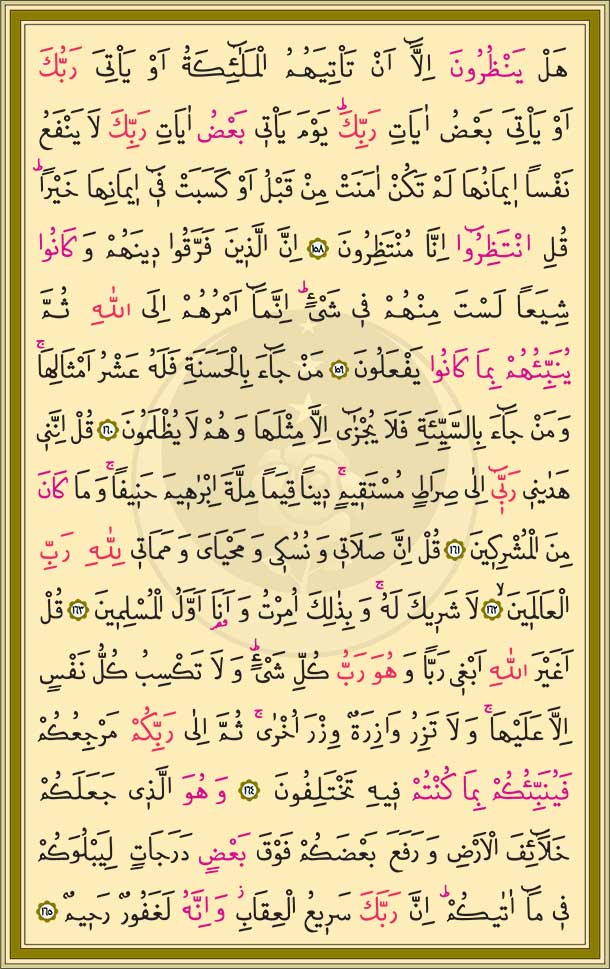 هَلْ يَنْظُرُونَ اِلَّٓا اَنْ تَأْتِيَهُمُ الْمَلٰٓئِكَةُ اَوْ يَأْتِىَ رَبُّكَ
اَوْ يَأْتِىَ بَعْضُ اٰيَاتِ رَبِّكَۜ يَوْمَ يَأْتٖى بَعْضُ اٰيَاتِ رَبِّكَ لَا يَنْفَعُ
نَفْسًا اٖيمَانُهَا لَمْ تَكُنْ اٰمَنَتْ مِنْ قَبْلُ اَوْ كَسَبَتْ فٖٓى اٖيمَانِهَا خَيْرًاۜ
قُلِ انْتَظِرُٓوا اِنَّا مُنْتَظِرُونَ ﴿١٥٨﴾ اِنَّ الَّذٖينَ فَرَّقُوا دٖينَهُمْ وَ كَانُوا
شِيَعًا لَسْتَ مِنْهُمْ فٖى شَىْءٍۜ اِنَّمَٓا اَمْرُهُمْ اِلَى اللّٰهِ ثُمَّ
يُنَبِّئُهُمْ بِمَا كَانُوا يَفْعَلُونَ ﴿١٥٩﴾ مَنْ جَٓاءَ بِالْحَسَنَةِ فَلَهُ عَشْرُ اَمْثَالِهَاۚ
وَ مَنْ جَٓاءَ بِالسَّيِّئَةِ فَلَا يُجْزٰٓى اِلَّا مِثْلَهَا وَ هُمْ لَا يُظْلَمُونَ ﴿١٦٠﴾ قُلْ اِنَّنٖى
هَدٰينٖى رَبّٖٓى اِلٰى صِرَاطٍ مُسْتَقٖيمٍۚ دٖينًا قِيَمًا مِلَّةَ اِبْرٰهٖيمَ حَنٖيفًاۚ وَ مَا كَانَ
مِنَ الْمُشْرِكٖينَ ﴿١٦١﴾ قُلْ اِنَّ صَلَاتٖى وَ نُسُكٖى وَ مَحْيَاىَ وَ مَمَاتٖى لِلّٰهِ رَبِّ
الْعَالَمٖينَۙ ﴿١٦٢﴾ لَا شَرٖيكَ لَهُۚ وَ بِذٰلِكَ اُمِرْتُ وَ اَنَا اَوَّلُ الْمُسْلِمٖينَ ﴿١٦٣﴾ قُلْ
اَغَيْرَ اللّٰهِ اَبْغٖى رَبًّا وَ هُوَ رَبُّ كُلِّ شَىْءٍۜ وَ لَا تَكْسِبُ كُلُّ نَفْسٍ
اِلَّا عَلَيْهَاۚ وَ لَا تَزِرُ وَازِرَةٌ وِزْرَ اُخْرٰىۚ ثُمَّ اِلٰى رَبِّكُمْ مَرْجِعُكُمْ
فَيُنَبِّئُكُمْ بِمَا كُنْتُمْ فٖيهِ تَخْتَلِفُونَ ﴿١٦٤﴾ وَ هُوَ الَّذٖى جَعَلَكُمْ
خَلَٓائِفَ الْاَرْضِ وَ رَفَعَ بَعْضَكُمْ فَوْقَ بَعْضٍ دَرَجَاتٍ لِيَبْلُوَكُمْ
فٖى مَٓا اٰتٰيكُمْۜ اِنَّ رَبَّكَ سَرٖيعُ الْعِقَابِۘ وَ اِنَّهُ لَغَفُورٌ رَحٖيمٌ ﴿١٦٥﴾